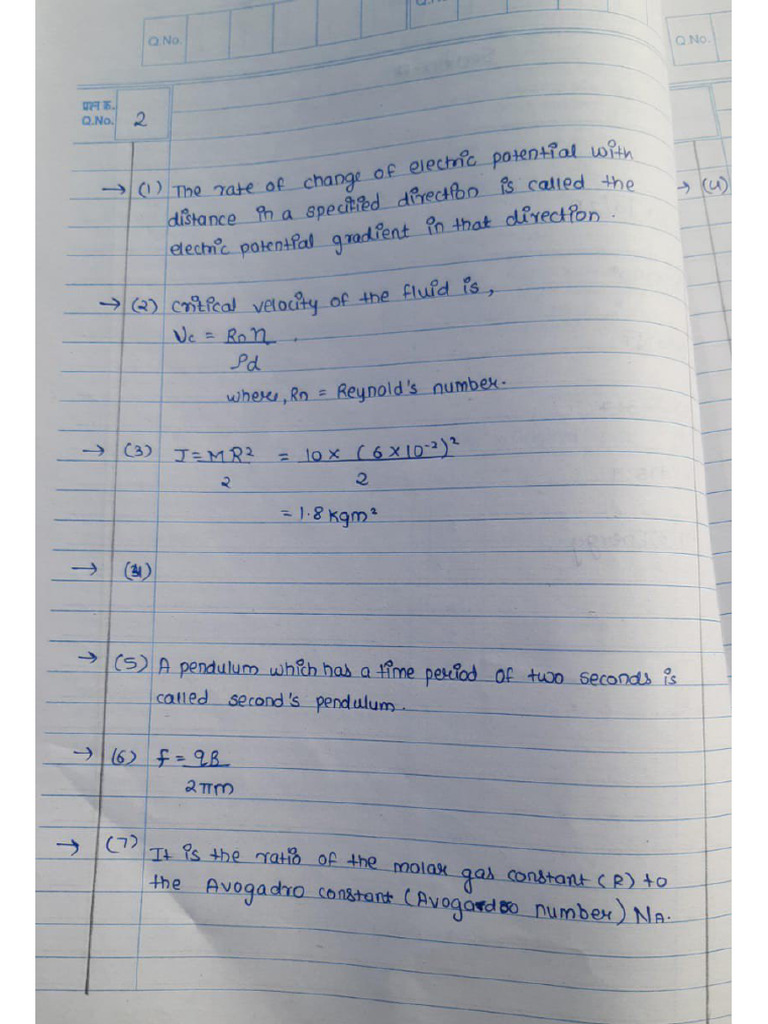 Q.No.
Q.No.
प्रश्न क्र.
Q.No. 2
→ (1) The rate of change of electric potential with
distance in a specified direction is called the
electric potential gradient in that direction.
→ (4)
→ (2) Critical velocity of the fluid is,
Vc = Rnη
ρd
where, Rn = Reynold's number.
→ (3) I = MR² = 10 × (6×10⁻²)²
2 2
= 1.8 kgm²
→ (4)
→ (5) A pendulum which has a time period of two seconds is
called second's pendulum.
→ (6) f = qB
2πm
→ (7) It is the ratio of the molar gas constant (R) to
the Avogadro constant (Avogardo number) NA.